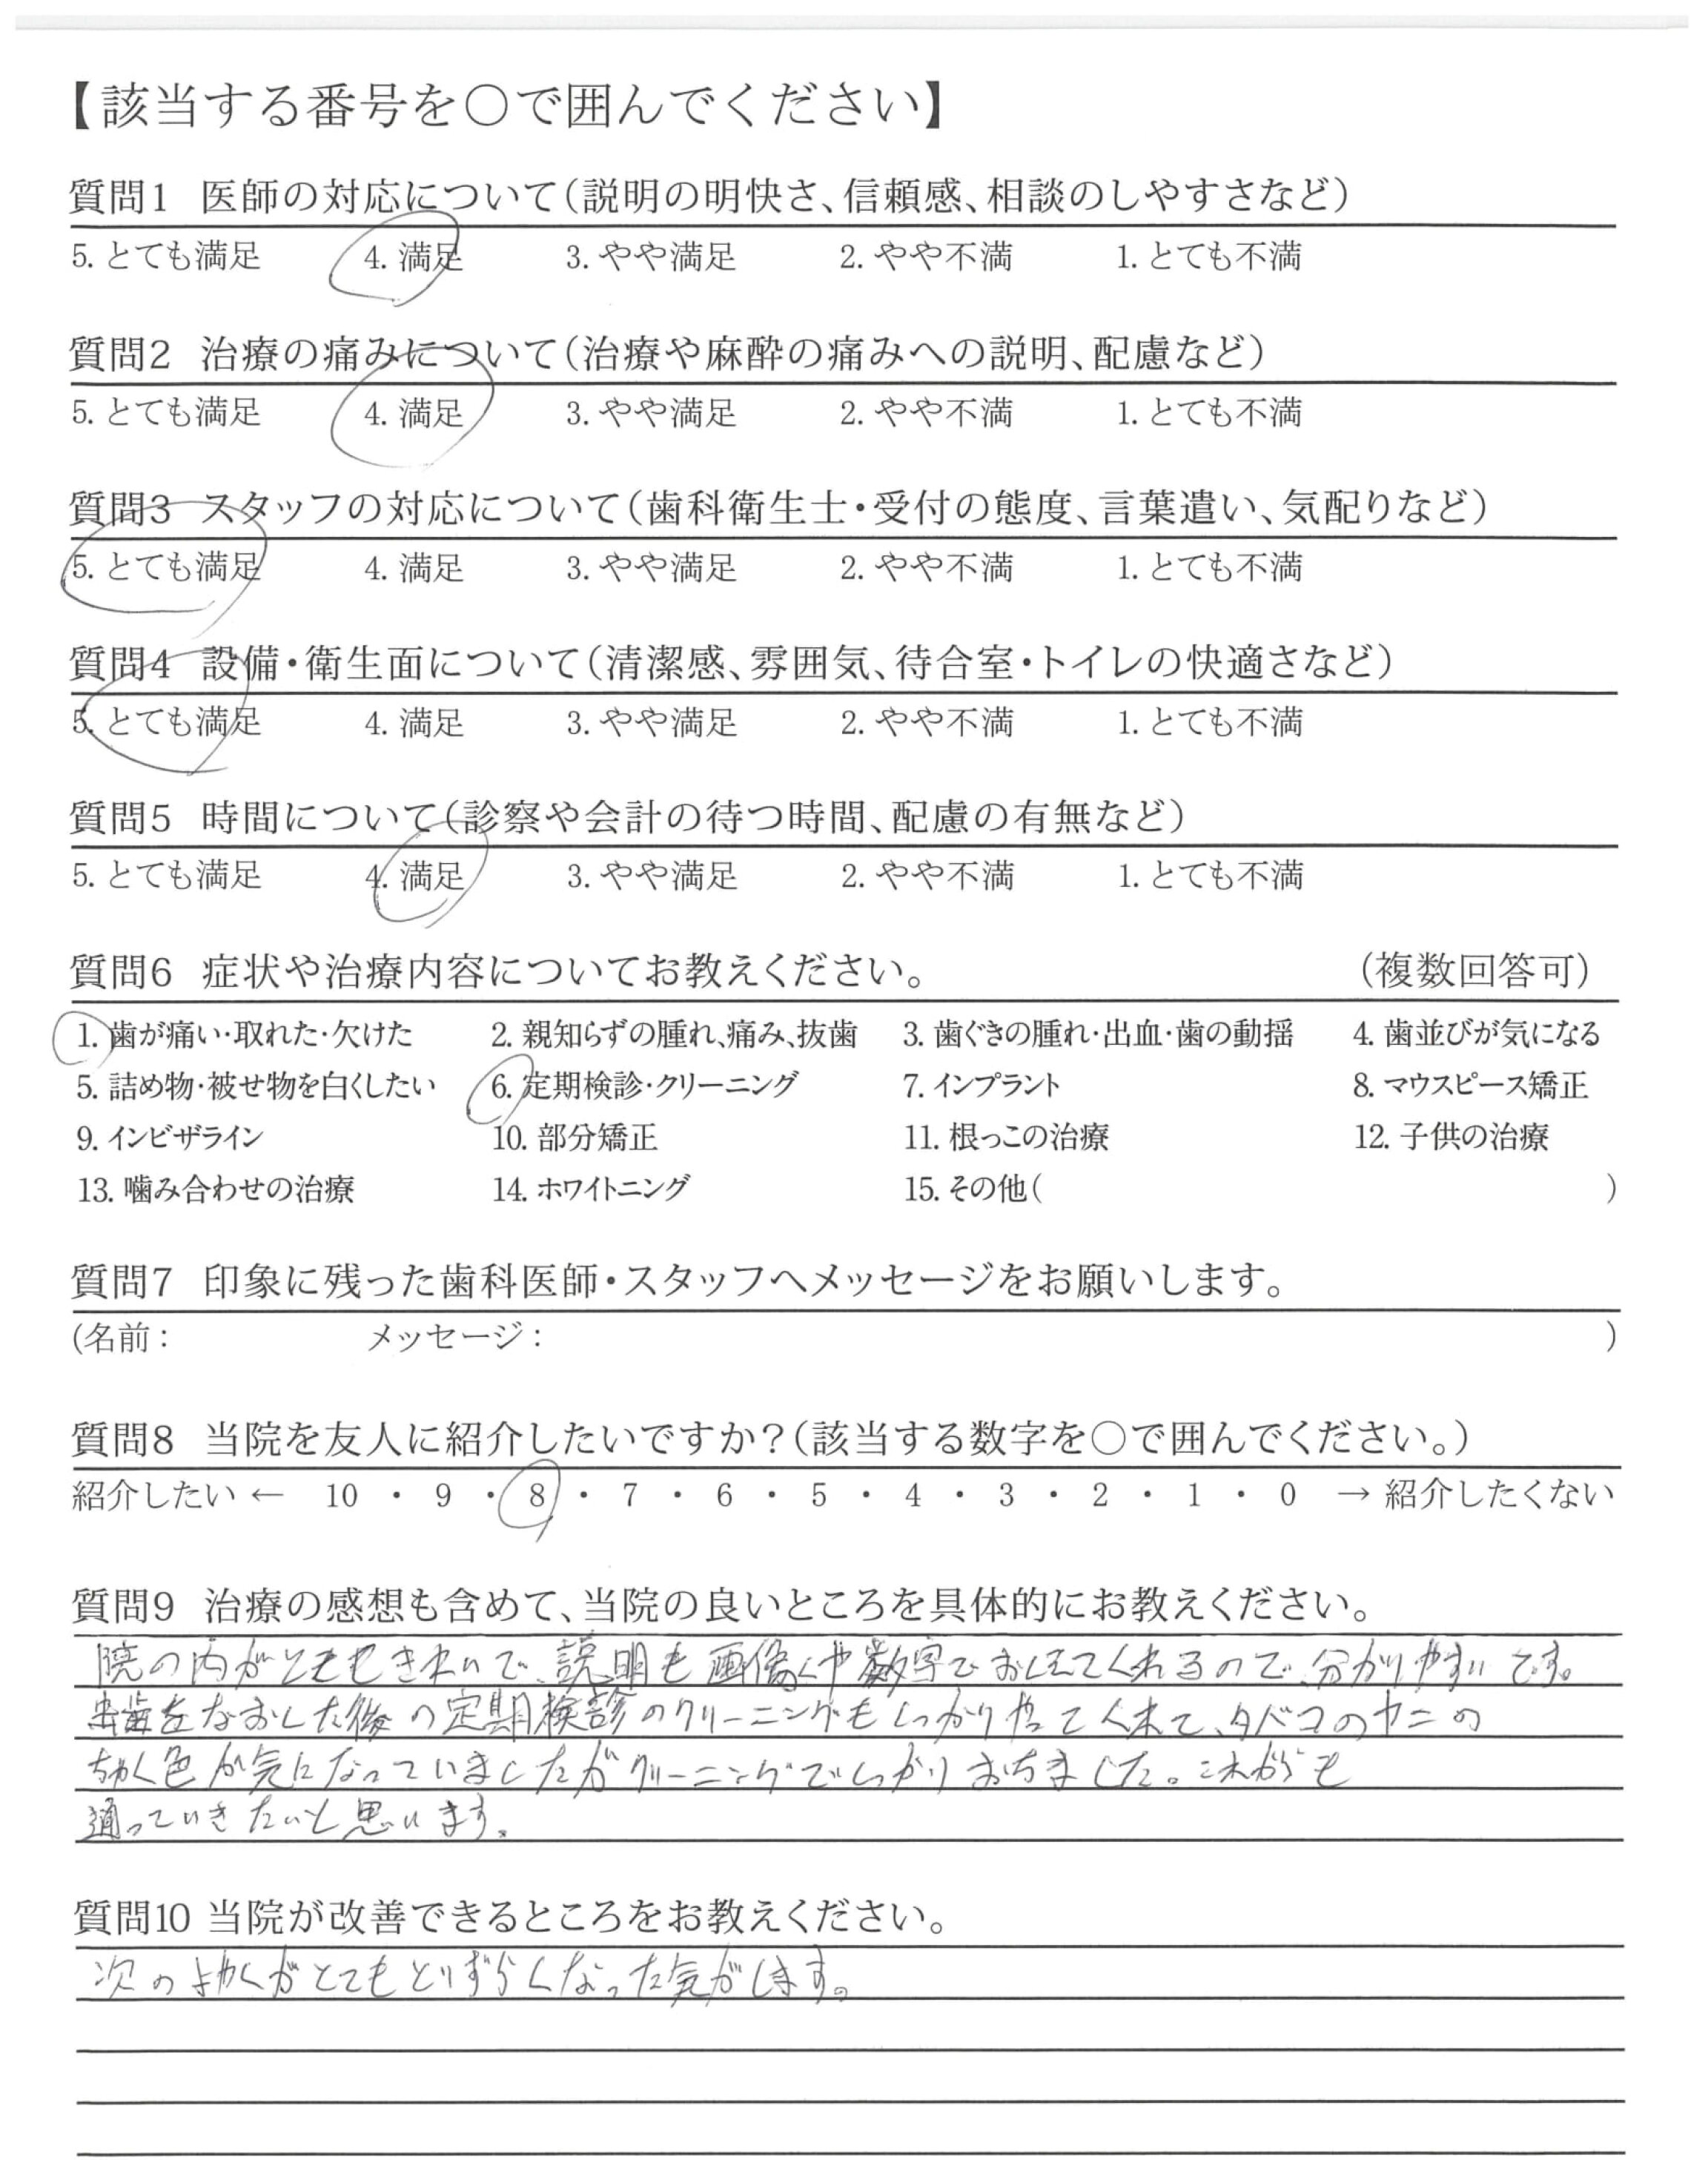 【該当する番号を○で囲んでください】
質問1 医師の対応について(説明の明快さ、信頼感、相談のしやすさなど)
5. とても満足 4. 満足 3. やや満足 2. やや不満 1. とても不満
質問2 治療の痛みについて(治療や麻酔の痛みへの説明、配慮など)
5. とても満足 4. 満足 3. やや満足 2. やや不満 1. とても不満
質問3 スタッフの対応について(歯科衛生士・受付の態度、言葉遣い、気配りなど)
5. とても満足 4. 満足 3. やや満足 2. やや不満 1. とても不満
質問4 設備・衛生面について(清潔感、雰囲気、待合室・トイレの快適さなど)
5. とても満足 4. 満足 3. やや満足 2. やや不満 1. とても不満
質問5 時間について(診察や会計の待つ時間、配慮の有無など)
5. とても満足 4. 満足 3. やや満足 2. やや不満 1. とても不満
質問6 症状や治療内容についてお教えください。 (複数回答可)
1. 歯が痛い・取れた・欠けた 2. 親知らずの腫れ、痛み、抜歯 3. 歯ぐきの腫れ・出血・歯の動揺 4. 歯並びが気になる
5. 詰め物・被せ物を白くしたい 6. 定期検診・クリーニング 7. インプラント 8. マウスピース矯正
9. インビザライン 10. 部分矯正 11. 根っこの治療 12. 子供の治療
13. 噛み合わせの治療 14. ホワイトニング 15. その他( )
質問7 印象に残った歯科医師・スタッフへメッセージをお願いします。
(名前: メッセージ: )
質問8 当院を友人に紹介したいですか?(該当する数字を○で囲んでください。)
紹介したい ← 10 ・ 9 ・ 8 ・ 7 ・ 6 ・ 5 ・ 4 ・ 3 ・ 2 ・ 1 ・ 0 → 紹介したくない
質問9 治療の感想も含めて、当院の良いところを具体的にお教えください。
院の内がとてもきれいで、説明も画像や数字でおしえてくれるので、分かりやすいです。
虫歯をなおした後の定期検診のクリーニングもしっかりやってくれて、タバコのヤニの
ちゃく色が気になっていましたがクリーニングでしっかりおちました。これからも
通っていきたいと思います。
質問10 当院が改善できるところをお教えください。
次のよやくがとてもとりずらくなった気がします。